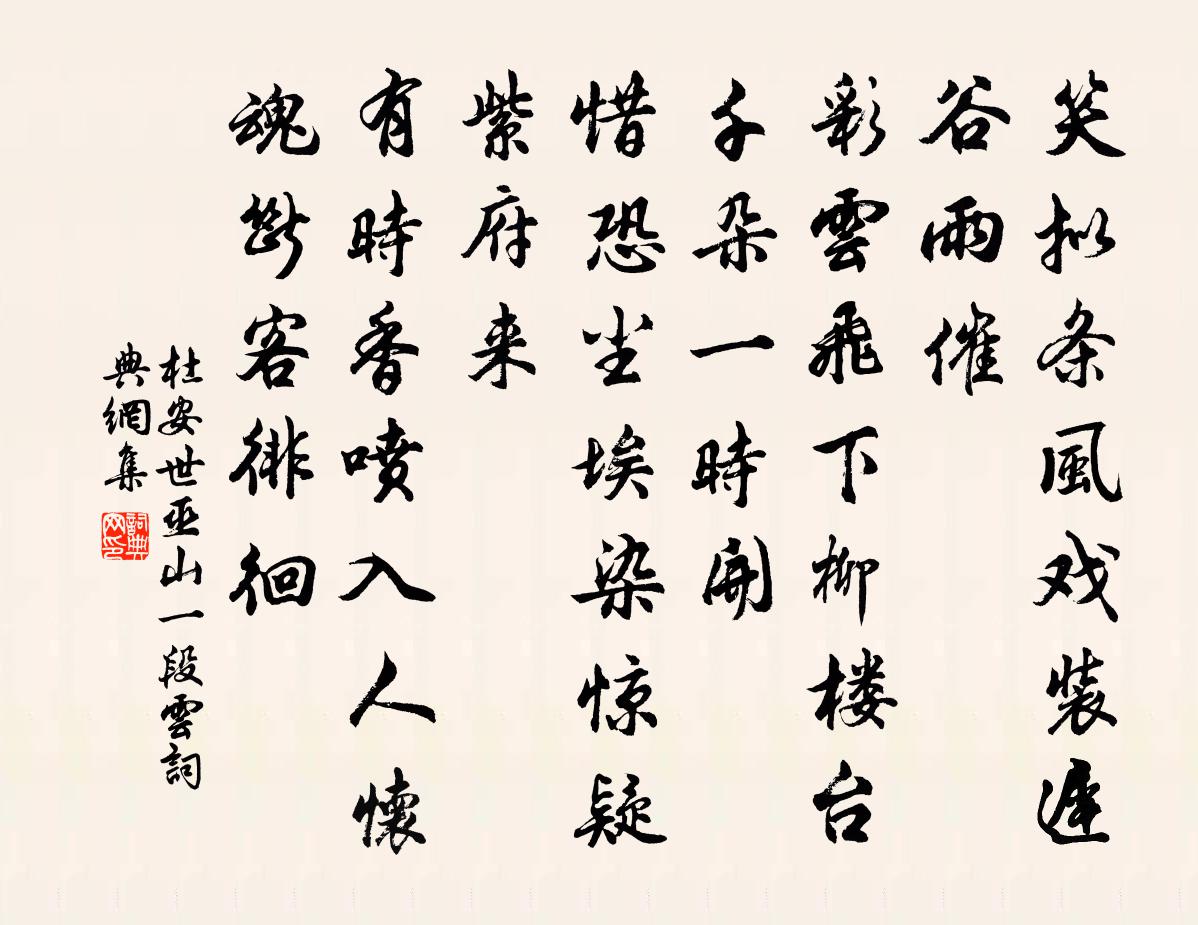 笑拟条風戏裝遲
谷雨催
彩雲飛下柳楼台
千朵一時開
惜恐尘埃染惊疑
紫府来
有時香噴入人懷
魂斷客徘徊
杜安世巫山一段雲詞
典網集
詞典
网印